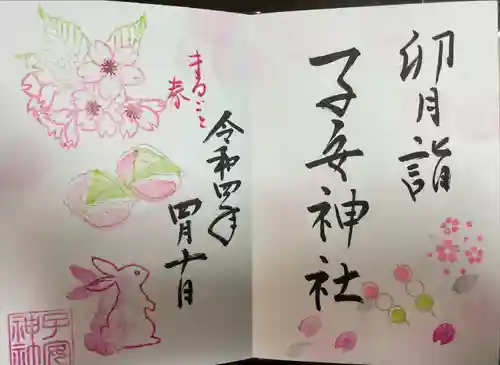 卯月詣
子安神社
まるごと
春
令和四年
四月十日
子安
神社